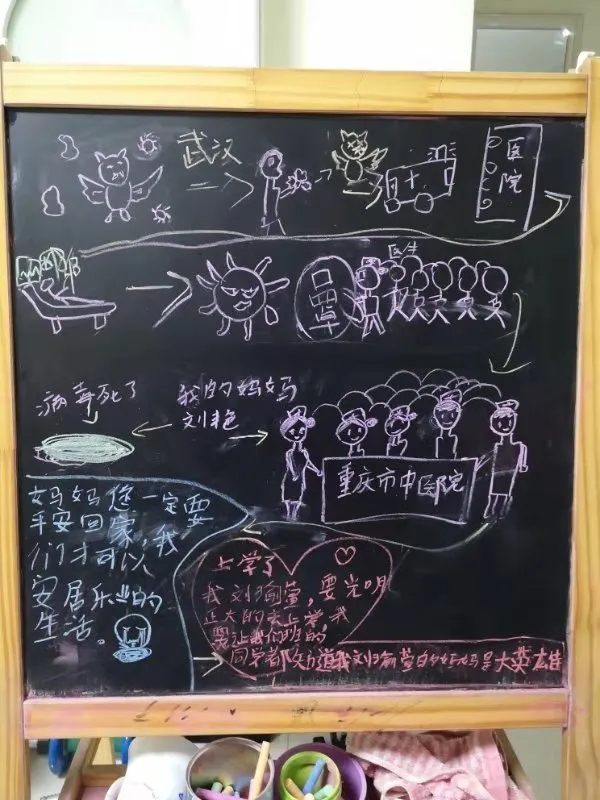 武汉
医院
医生
口罩
病毒死了
我的妈妈
刘艳
重庆市中医院
妈妈您一定要
平安回家,我
们才可以
安居乐业的
生活。
上学了
我刘瑜萱,要光明
正大的去上学,我
要让我们班的
同学都知道我刘瑜萱的妈妈是大英雄